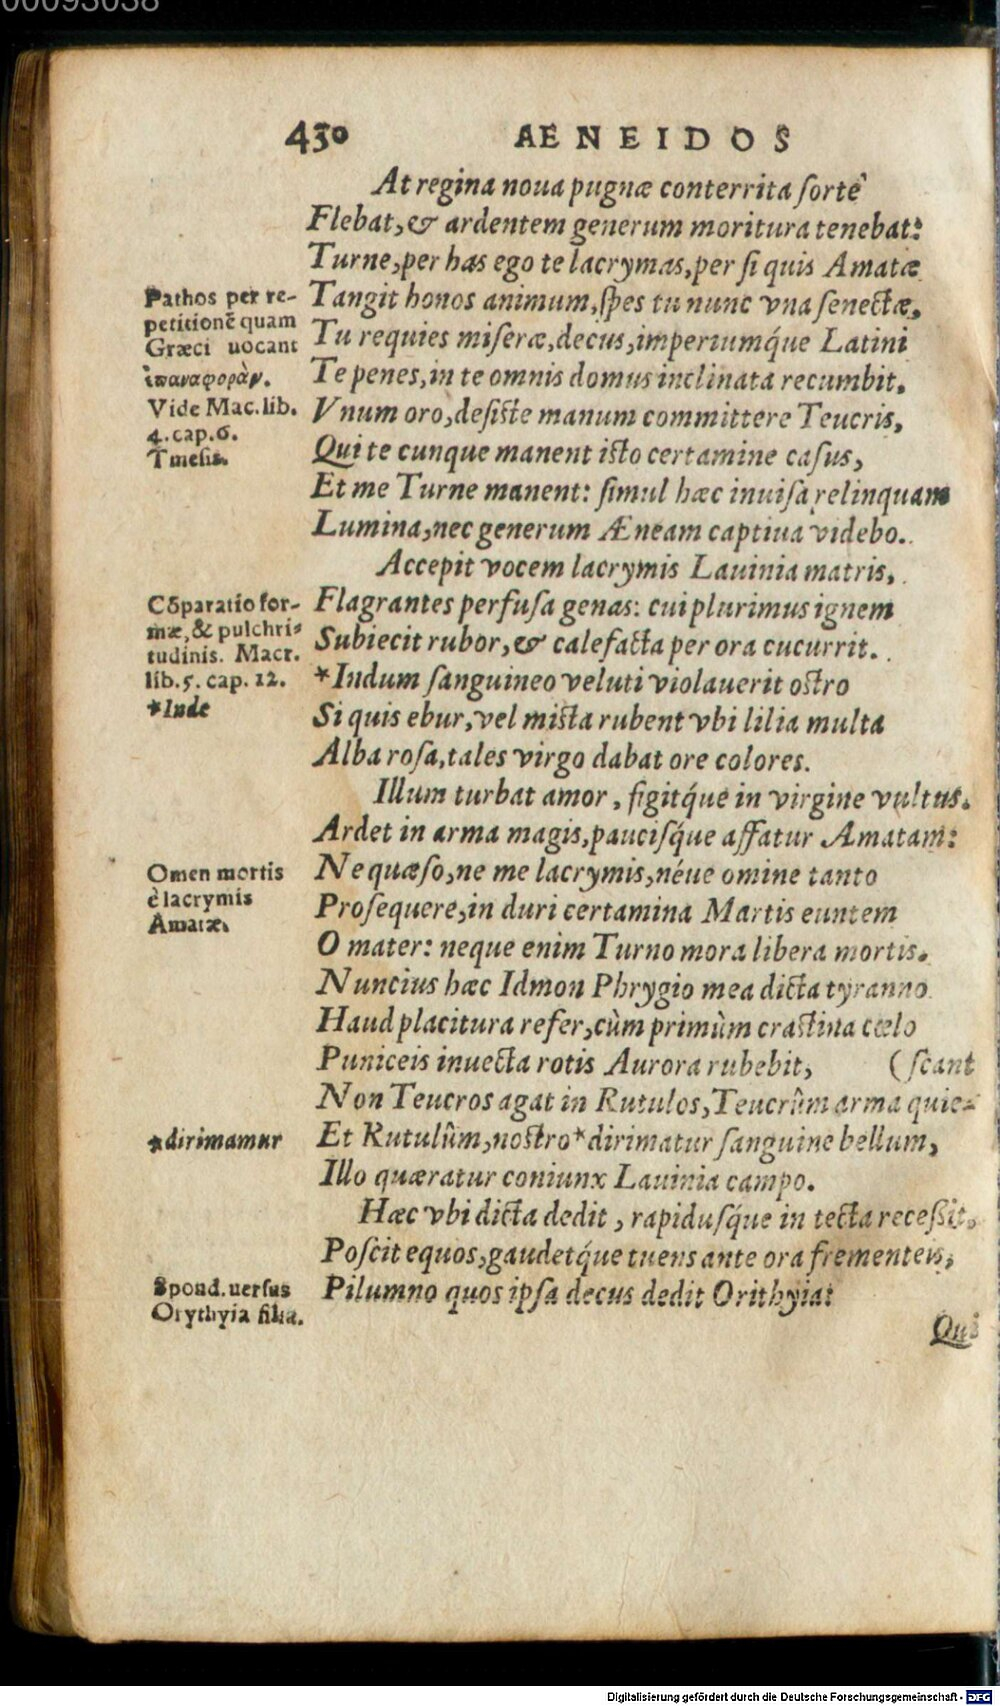 00093038
430 AENEIDOS
At regina noua pugnæ conterrita ſorte
Flebat, & ardentem generum moritura tenebat:
Turne, per has ego te lacrymas, per ſi quis Amatæ
Tangit honos animum, ſpes tu nunc vna ſenectæ,
Tu requies miſeræ, decus, imperiumq́ue Latini
Te penes, in te omnis domus inclinata recumbit.
Vnum oro, deſiſte manum committere Teucris,
Qui te cunque manent iſto certamine caſus,
Et me Turne manent: ſimul hæc inuiſa relinquam
Lumina, nec generum Æneam captiua videbo.
Accepit vocem lacrymis Lauinia matris,
Flagrantes perfuſa genas: cui plurimus ignem
Subiecit rubor, & calefacta per ora cucurrit.
*Indum ſanguineo veluti violauerit oſtro
Si quis ebur, vel miſta rubent vbi lilia multa
Alba roſa, tales virgo dabat ore colores.
Illum turbat amor, figitq́ue in virgine vultus.
Ardet in arma magis, pauciſq́ue affatur Amatam:
Ne quæſo, ne me lacrymis, néue omine tanto
Proſequere, in duri certamina Martis euntem
O mater: neque enim Turno mora libera mortis.
Nuncius hæc Idmon Phrygio mea dicta tyranno
Haud placitura refer, cùm primùm craſtina cœlo
Puniceis inuecta rotis Aurora rubebit, (ſcant
Non Teucros agat in Rutulos, Teucrûm arma quie-
Et Rutulûm, noſtro *dirimatur ſanguine bellum,
Illo quæratur coniunx Lauinia campo.
Hæc vbi dicta dedit, rapiduſq́ue in tecta receſsit.
Poſcit equos, gaudetq́ue tuens ante ora frementeis,
Pilumno quos ipſa decus dedit Orithyia:
Qui
Pathos per re-
petitionē quam
Græci uocant
ἐπαναφορὰν.
Vide Mac. lib.
4. cap. 6.
Tmeſis.
Cōparatio for-
mæ, & pulchri-
tudinis. Macr.
lib. 5. cap. 12.
*Inde
Omen mortis
è lacrymis
Amatæ.
*dirimamur
Spond. uerſus
Orythyia filia.
Digitalisierung gefördert durch die Deutsche Forschungsgemeinschaft - DFG